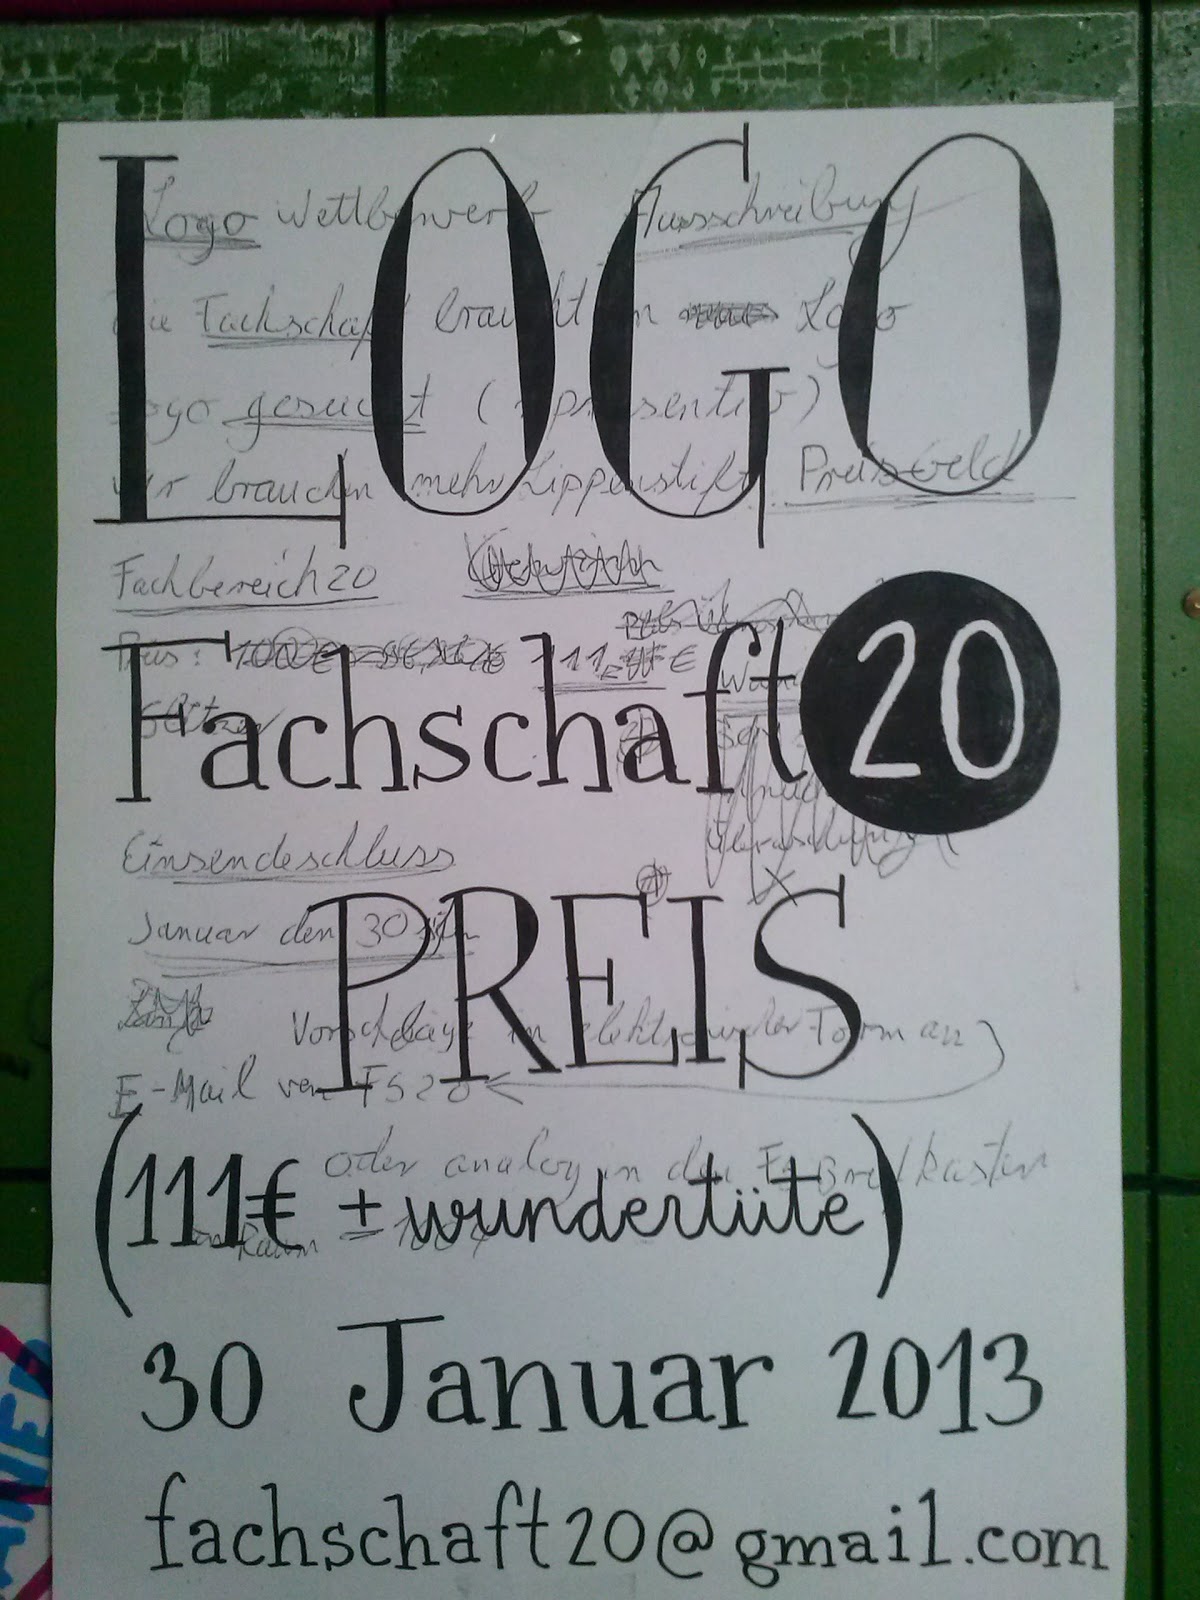 LOGO
Logo Wettbewerb Ausschreibung
Die Fachschaft braucht ein Logo
Logo gesucht (repräsentativ)
wir brauchen mehr Lippenstift Preisgeld
Fachbereich 20
Preis: 111,- €
Fachschaft 20
Einsendeschluss
Januar den 30
PREIS
Vorschläge in elektronischer Form an
E-Mail von FS20
oder analog in den FS Briefkasten
(111€ ± wundertüte)
Raum
30 Januar 2013
fachschaft20@gmail.com